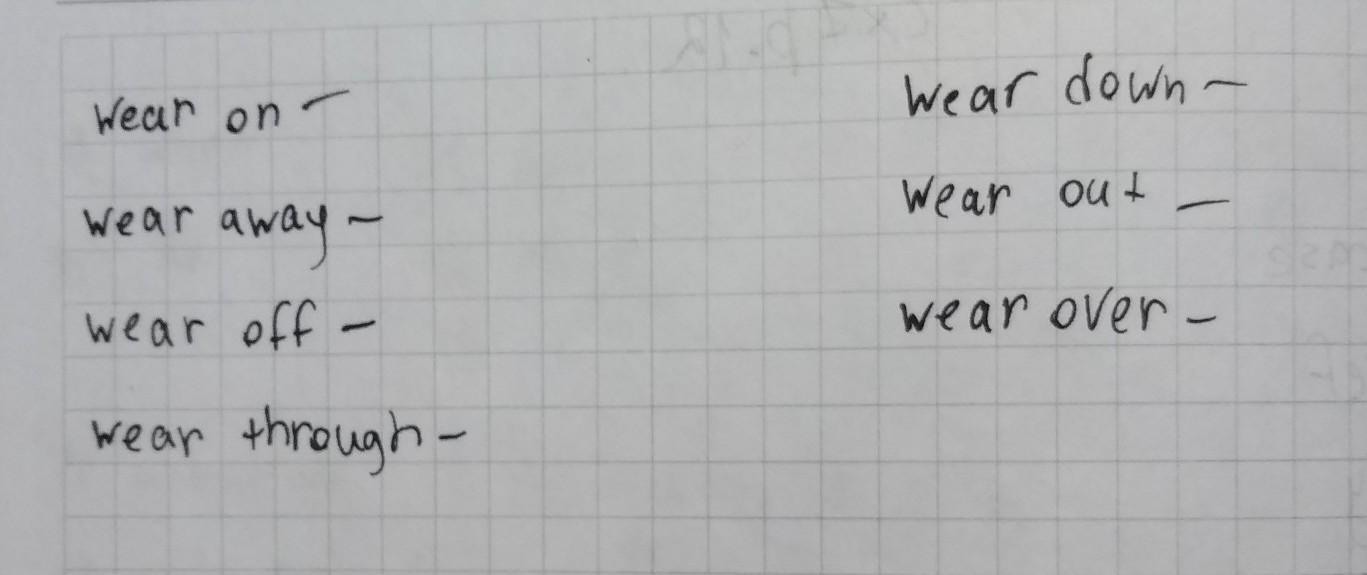 wear on –
wear away –
wear off –
wear through –
wear down –
wear out –
wear over –